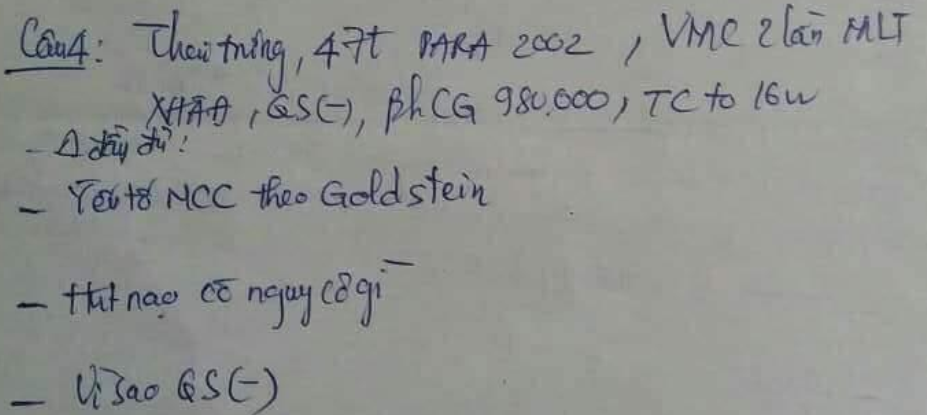 Câu4: Thai trứng, 47t PARA 2002, VMC 2 lần MLT
XHÂĐ, QS(-), βhCG 980.000, TC to 16w
- Δ đầy đủ:
- Yếu tố NCC theo Goldstein
- Hút nạo có nguy cơ gì
- Vì sao QS(-)